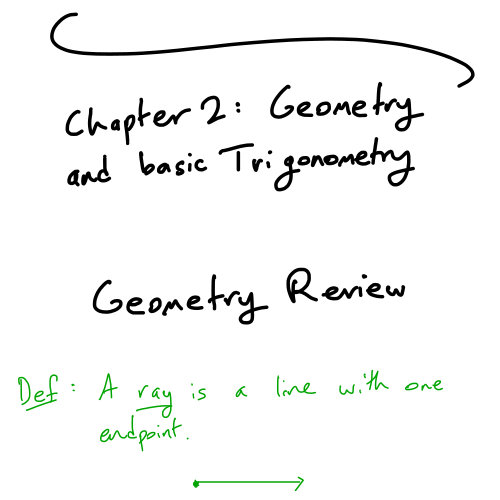 Chapter 2: Geometry
and basic Trigonometry
Geometry Review
Def: A ray is a line with one
endpoint.